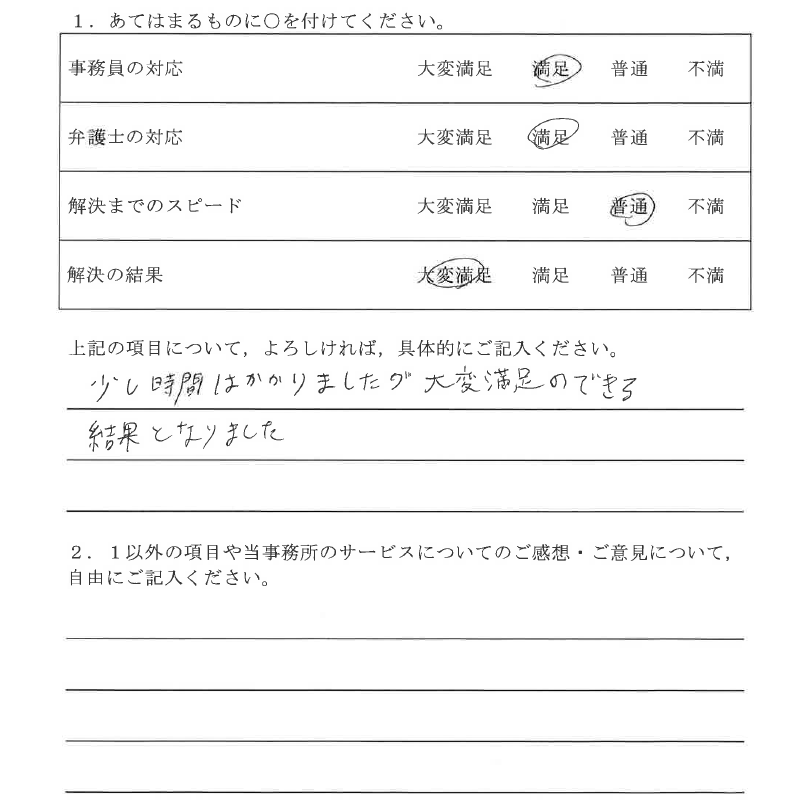 １．あてはまるものに○を付けてください。
事務員の対応 大変満足 満足 普通 不満
弁護士の対応 大変満足 満足 普通 不満
解決までのスピード 大変満足 満足 普通 不満
解決の結果 大変満足 満足 普通 不満
上記の項目について，よろしければ，具体的にご記入ください。
少し時間はかかりましたが大変満足のできる
結果となりました
２．１以外の項目や当事務所のサービスについてのご感想・ご意見について，
自由にご記入ください。